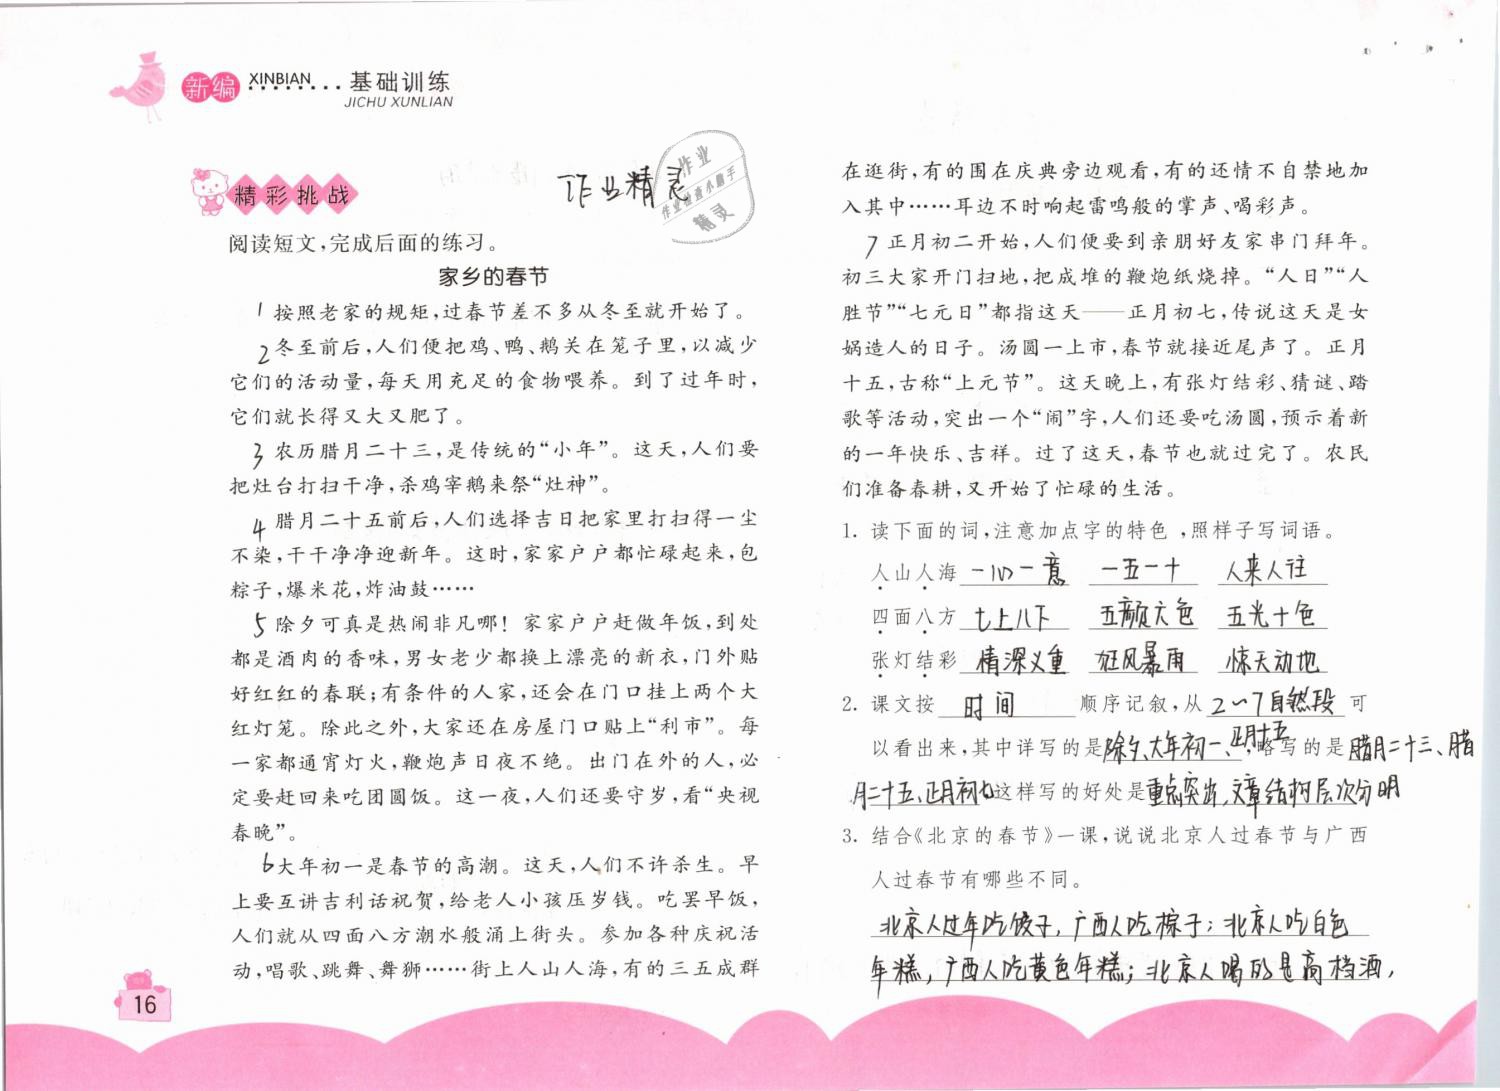 新编 XINBIAN 基础训练
JICHU XUNLIAN
精彩挑战
作业精灵
作业
作业检查小助手
精灵
阅读短文,完成后面的练习。
家乡的春节
1 按照老家的规矩,过春节差不多从冬至就开始了。
2 冬至前后,人们便把鸡、鸭、鹅关在笼子里,以减少
它们的活动量,每天用充足的食物喂养。到了过年时,
它们就长得又大又肥了。
3 农历腊月二十三,是传统的“小年”。这天,人们要
把灶台打扫干净,杀鸡宰鹅来祭“灶神”。
4 腊月二十五前后,人们选择吉日把家里打扫得一尘
不染,干干净净迎新年。这时,家家户户都忙碌起来,包
粽子,爆米花,炸油鼓……
5 除夕可真是热闹非凡哪！家家户户赶做年饭,到处
都是酒肉的香味,男女老少都换上漂亮的新衣,门外贴
好红红的春联;有条件的人家,还会在门口挂上两个大
红灯笼。除此之外,大家还在房屋门口贴上“利市”。每
一家都通宵灯火,鞭炮声日夜不绝。出门在外的人,必
定要赶回来吃团圆饭。这一夜,人们还要守岁,看“央视
春晚”。
6 大年初一是春节的高潮。这天,人们不许杀生。早
上要互讲吉利话祝贺,给老人小孩压岁钱。吃罢早饭,
人们就从四面八方潮水般涌上街头。参加各种庆祝活
动,唱歌、跳舞、舞狮……街上人山人海,有的三五成群
16
在逛街,有的围在庆典旁边观看,有的还情不自禁地加
入其中……耳边不时响起雷鸣般的掌声、喝彩声。
7 正月初二开始,人们便要到亲朋好友家串门拜年。
初三大家开门扫地,把成堆的鞭炮纸烧掉。“人日”“人
胜节”“七元日”都指这天——正月初七,传说这天是女
娲造人的日子。汤圆一上市,春节就接近尾声了。正月
十五,古称“上元节”。这天晚上,有张灯结彩、猜谜、踏
歌等活动,突出一个“闹”字,人们还要吃汤圆,预示着新
的一年快乐、吉祥。过了这天,春节也就过完了。农民
们准备春耕,又开始了忙碌的生活。
1. 读下面的词,注意加点字的特色,照样子写词语。
人山人海 一心一意 一五一十 人来人往
四面八方 七上八下 五颜六色 五光十色
张灯结彩 情深义重 狂风暴雨 惊天动地
2. 课文按 时间 顺序记叙,从 2~7自然段 可
以看出来,其中详写的是 除夕、大年初一、正月十五 ,略写的是 腊月二十三、腊
月二十五、正月初七 这样写的好处是 重点突出,文章结构层次分明
3. 结合《北京的春节》一课,说说北京人过春节与广西
人过春节有哪些不同。
北京人过年吃饺子,广西人吃粽子;北京人吃白色
年糕,广西人吃黄色年糕;北京人喝的是高档酒,